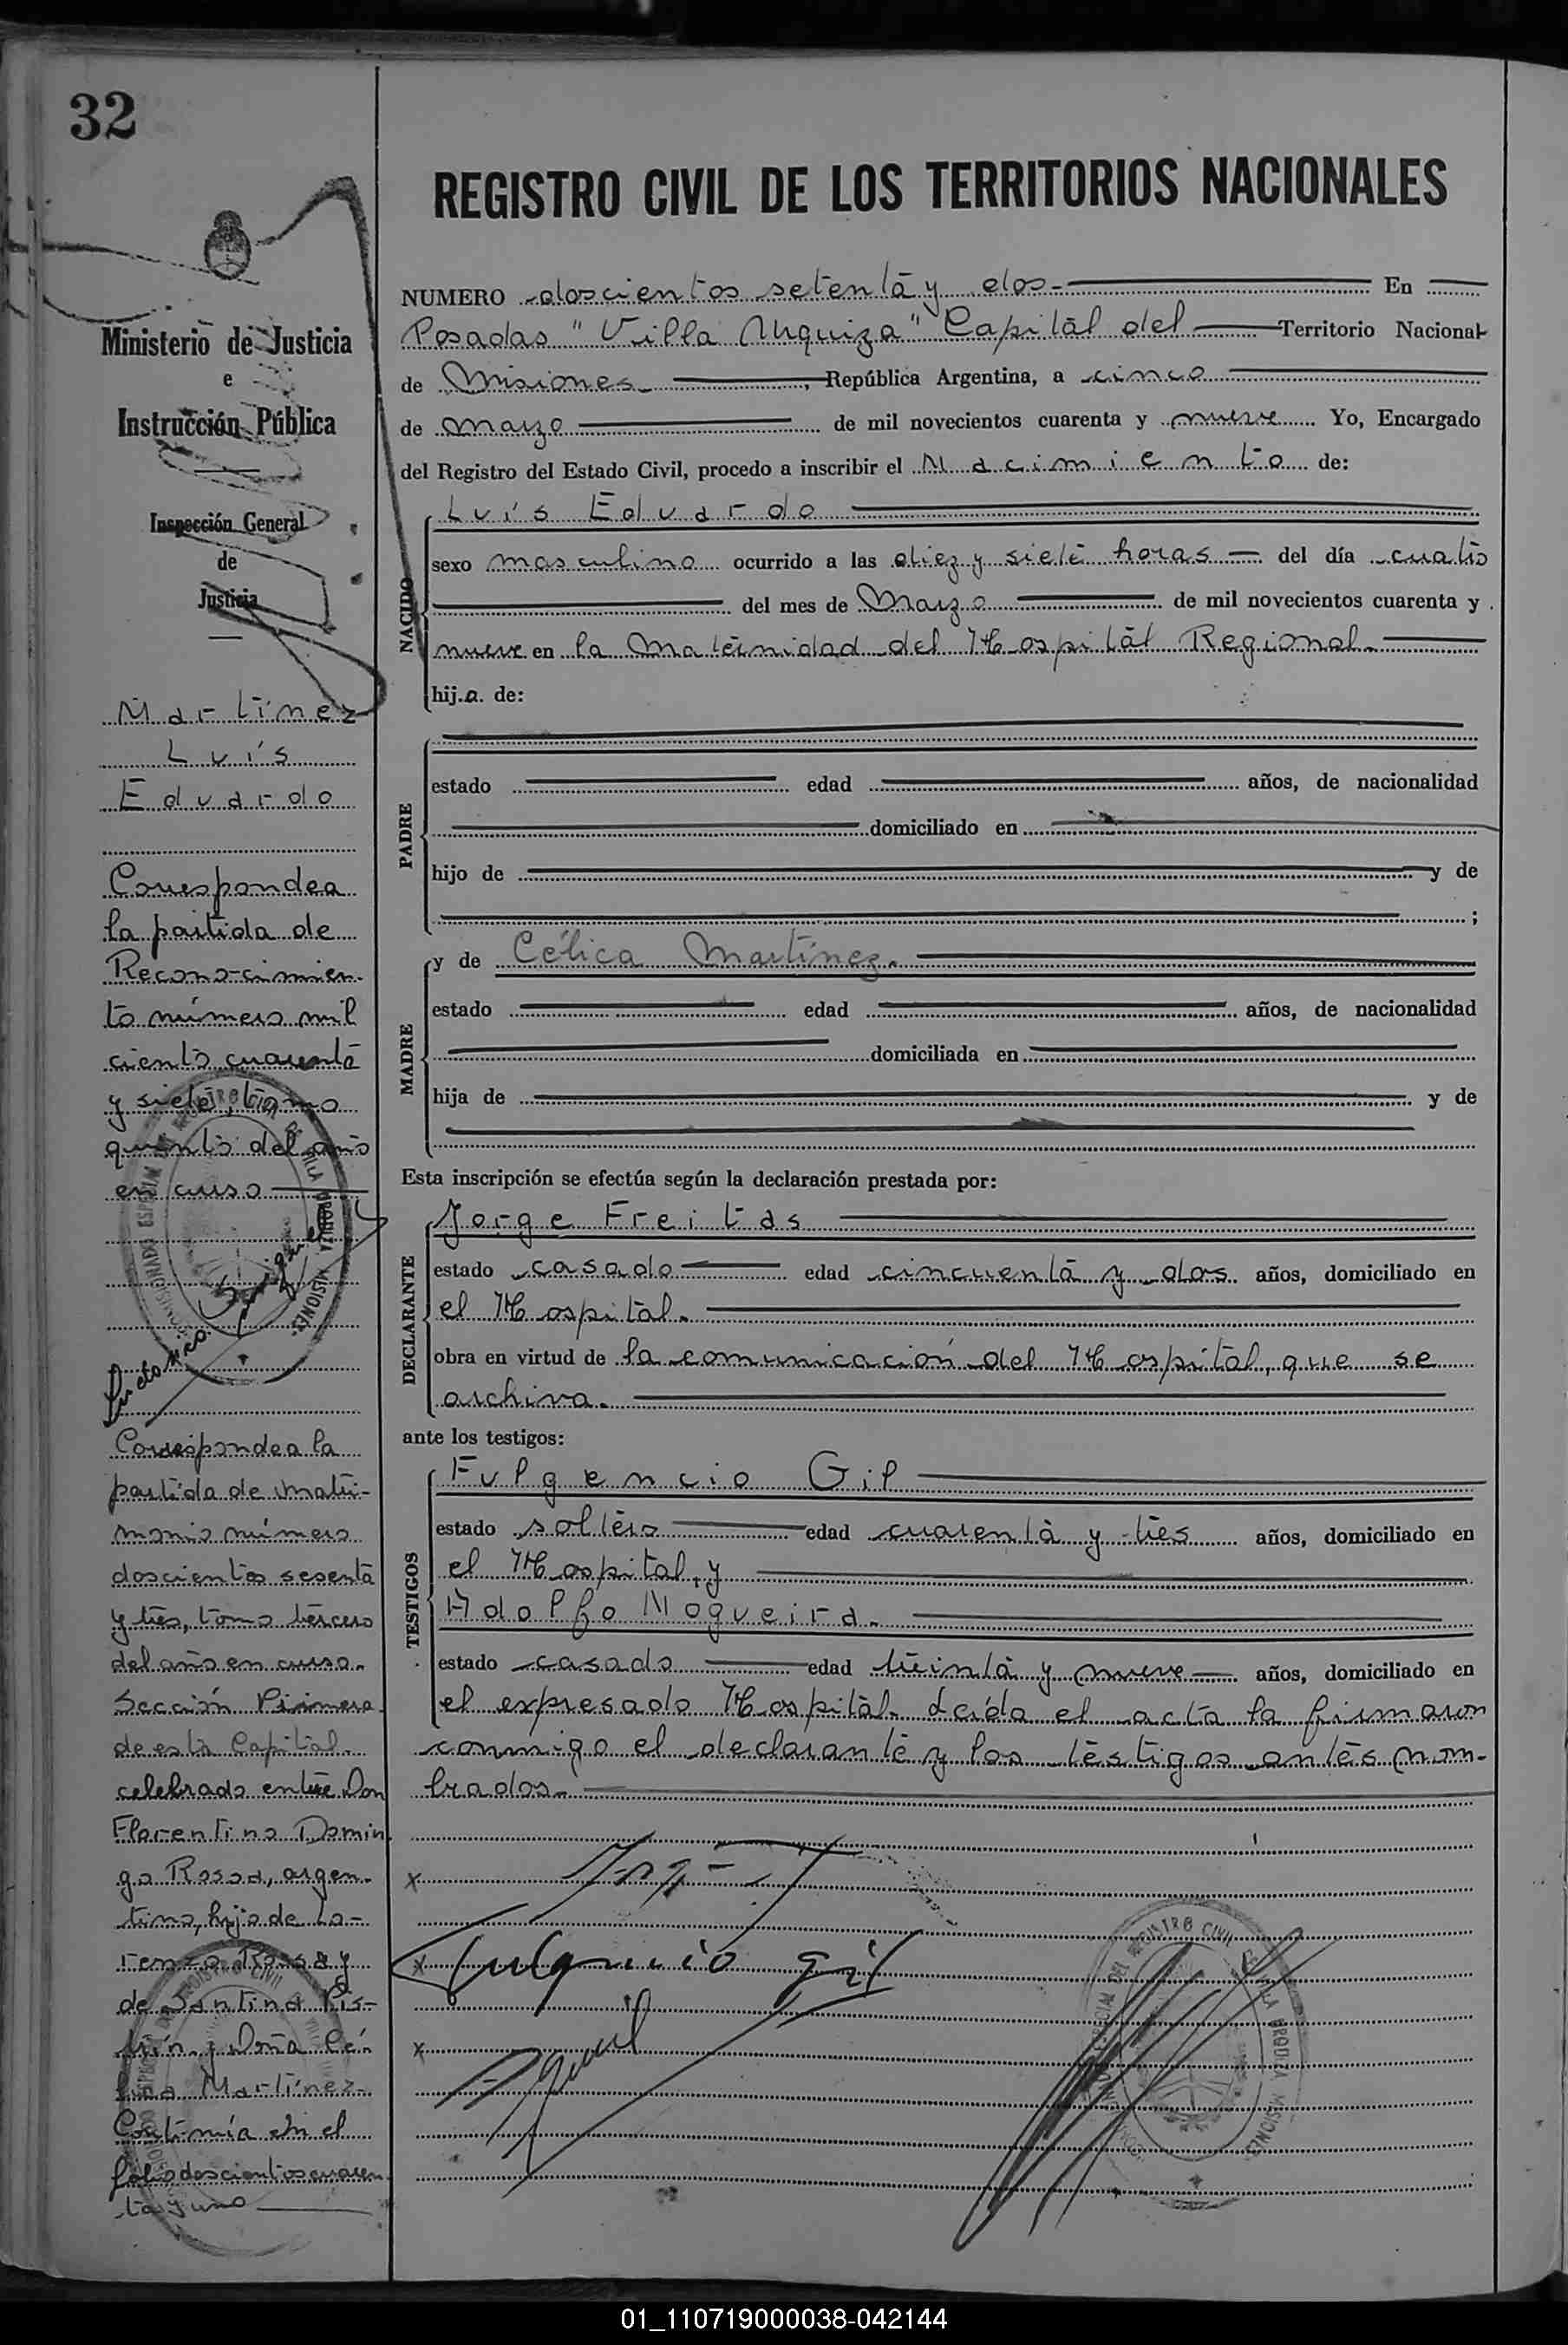 32
REGISTRO CIVIL DE LOS TERRITORIOS NACIONALES
Ministerio de Justicia
e
Instrucción Pública
Inspección General
de
Justicia
Martínez
Luís
Eduardo
Corresponde a
la partida de
Reconocimien-
to número mil
ciento cuarenta
y siete, tomo
quinto del año
en curso
Corresponde a la
partida de matri-
monio número
doscientos sesenta
y tres, tomo tercero
del año en curso.
Sección Primera
de esta Capital.
celebrado entre Don
Florentino Domin
go Rossa, argen-
tino, hijo de Lo-
renzo Rossa y
de Santina Pis-
y Doña Cé-
lica Martínez.
Continúa en el
folio doscientos cuaren
ta y uno
NUMERO doscientos setenta y dos- En
Posadas "Villa Urquiza" Capital del Territorio Nacional
de Misiones. , República Argentina, a cinco
de marzo de mil novecientos cuarenta y nueve Yo, Encargado
del Registro del Estado Civil, procedo a inscribir el Nacimiento de:
NACIDO
Luís Eduardo
sexo masculino ocurrido a las diez y siete horas del día cuatro
del mes de Marzo de mil novecientos cuarenta y
nueve en la Maternidad del Hospital Regional.
hij.o. de:
PADRE
estado edad años, de nacionalidad
domiciliado en
hijo de y de
;
MADRE
y de Célica Martínez.
estado edad años, de nacionalidad
domiciliada en
hija de y de
Esta inscripción se efectúa según la declaración prestada por:
DECLARANTE
Jorge Freitas
estado casado edad cincuenta y dos años, domiciliado en
el Hospital.
obra en virtud de la comunicación del Hospital, que se
archiva.
ante los testigos:
TESTIGOS
Fulgencio Gil
estado soltero edad cuarenta y tres años, domiciliado en
el Hospital, y
Adolfo Nogueira.
estado casado edad treinta y nueve años, domiciliado en
el expresado Hospital. Leída el acta la firmaron
conmigo el declarante y los testigos antes nom-
brados.
x
x Fulgencio Gil
x
01_110719000038-042144